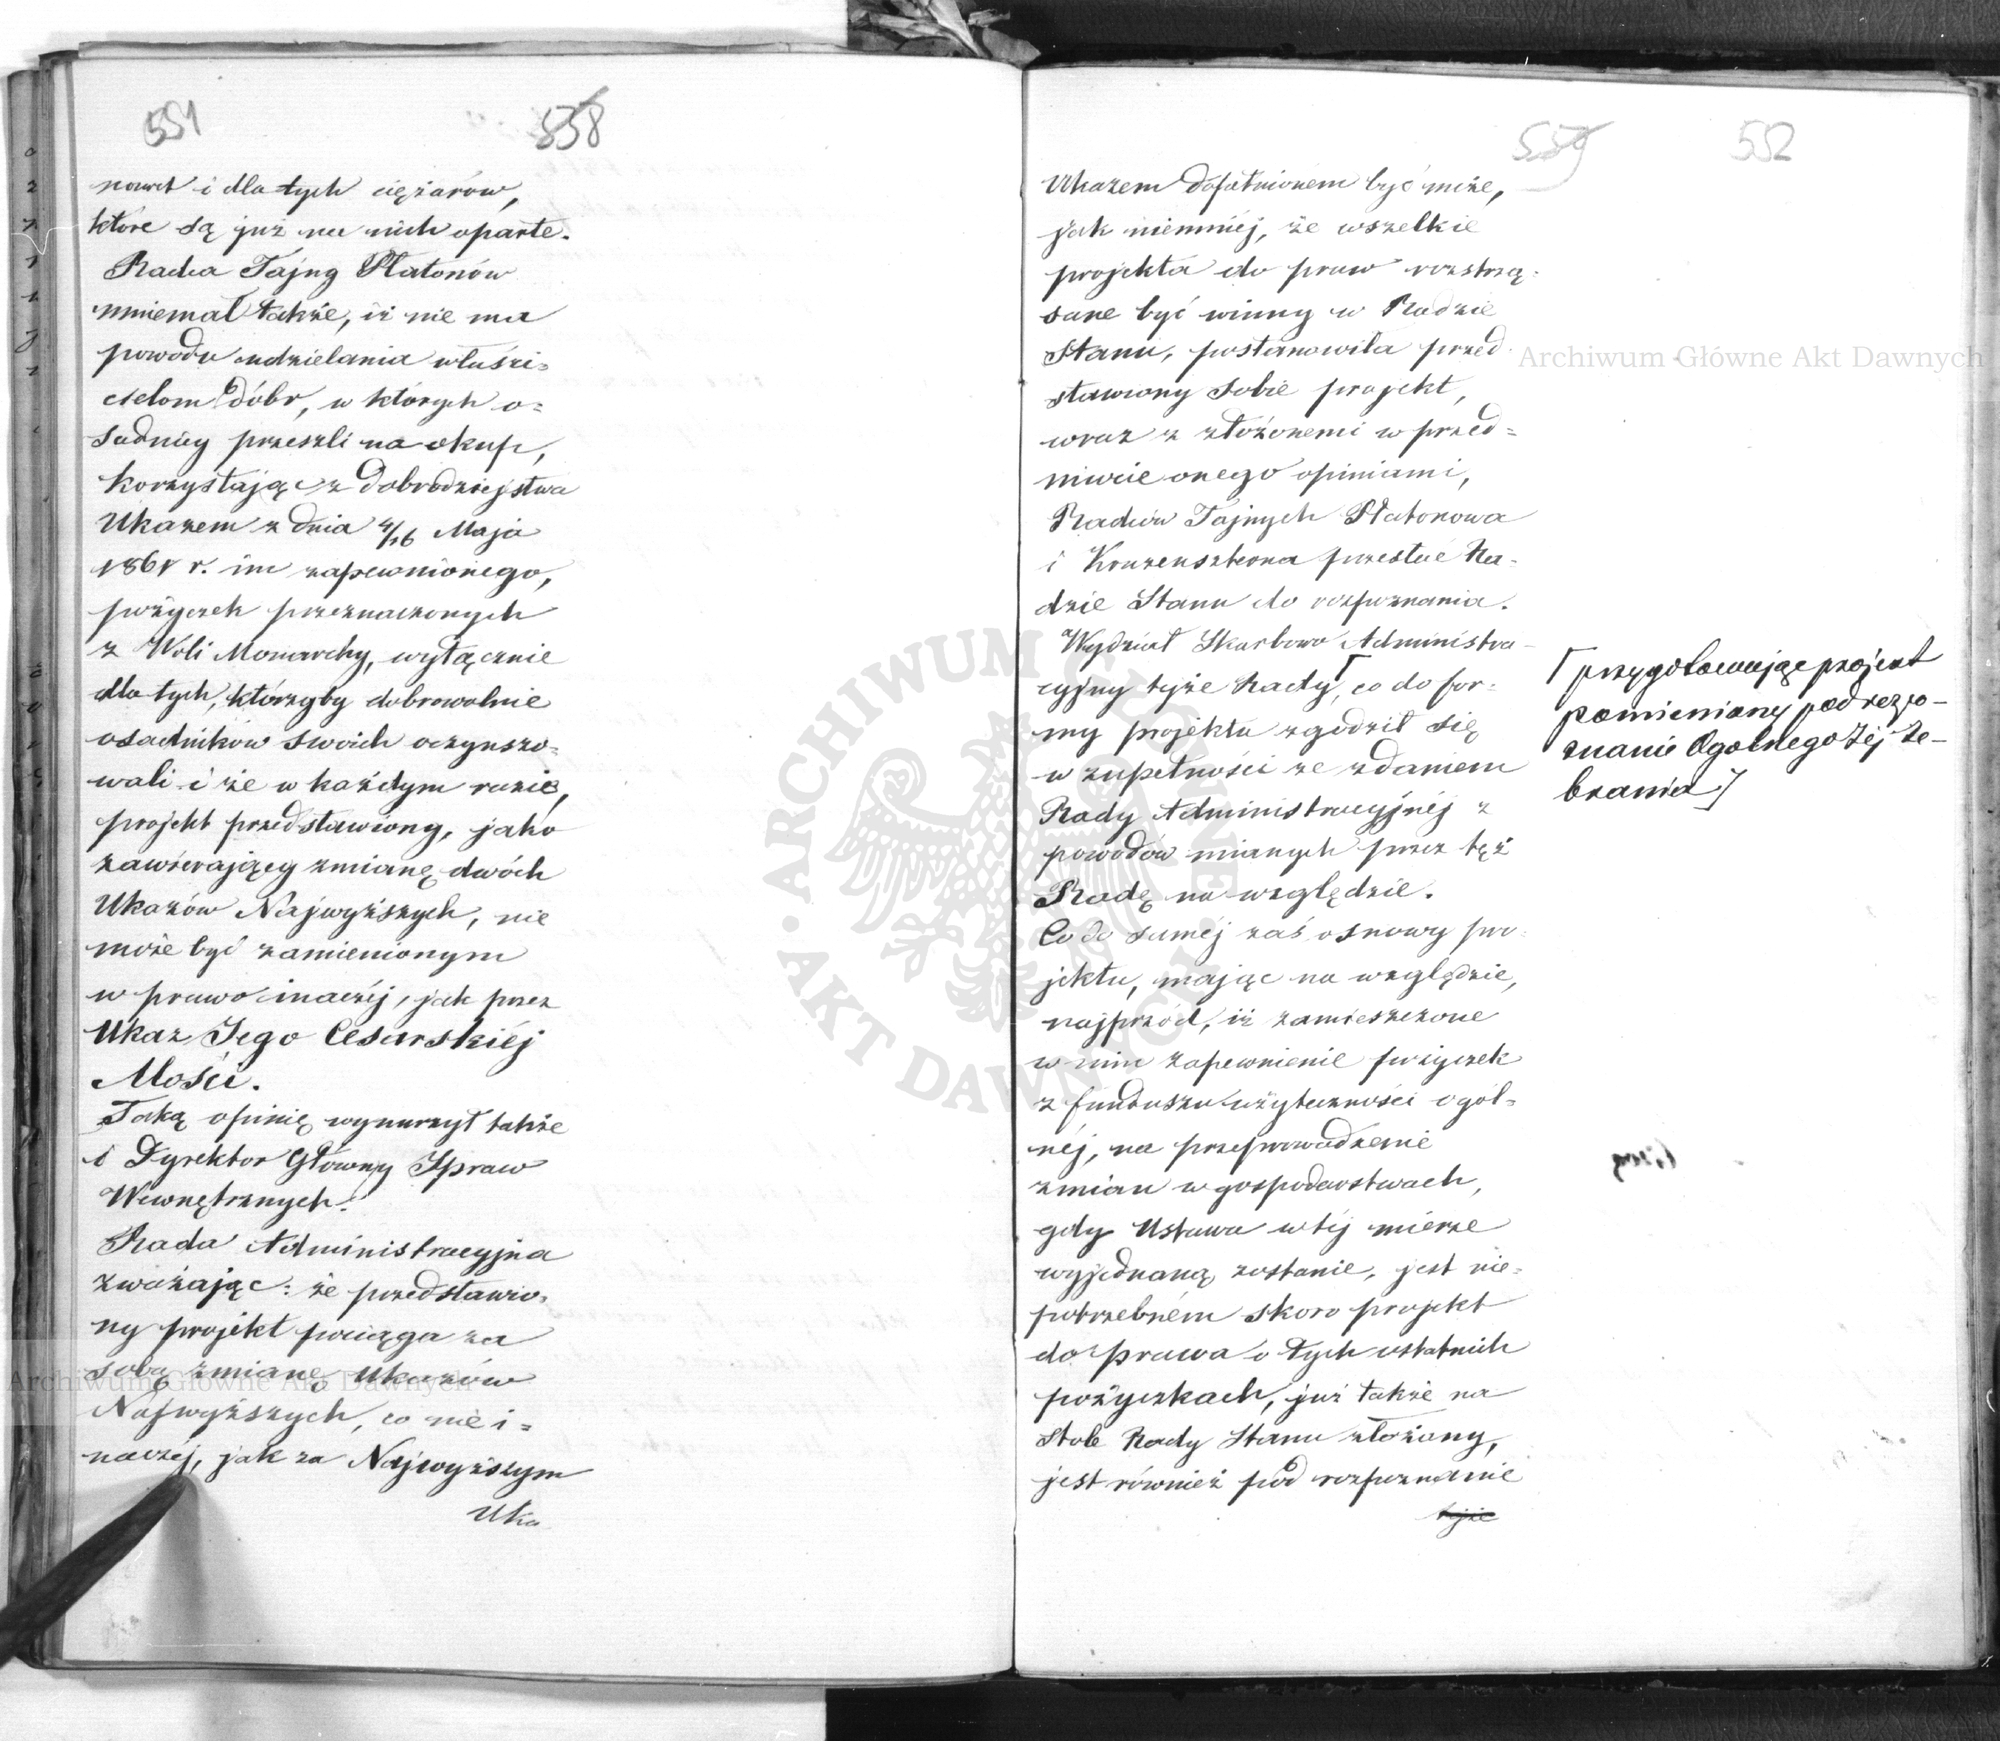 551
558
nawet i dla tych ciężarów,
które są już na nich oparte.
Radca Tajny Płatonów
mniemał także, iż nie ma
powodu udzielania właści-
cielom dóbr, w których o-
sadnicy przeszli na okup,
korzystając z dobrodziejstwa
Ukazem z dnia 4/16 Maja
1861 r. im zapewnionego,
pożyczek przeznaczonych
z Woli Monarchy, wyłącznie
dla tych, którzyby dobrowolnie
osadników swoich oczynszo-
wali i że w każdym razie,
projekt przedstawiony, jako
zawierający zmianę dwóch
Ukazów Najwyższych, nie
może być zamienionym
w prawo inaczéj, jak przez
Ukaz Jego Cesarskiéj
Mości.
Taką opinię wynurzył także
i Dyrektor Główny Spraw
Wewnętrznych.
Rada Administracyjna
zważając: że przedstawio-
ny projekt pociąga za
sobą zmianę Ukazów
Najwyższych, co nie i-
naczéj, jak za Najwyższym
Uka
559
552
Ukazem dopełnionem być może,
jak niemniéj, że wszelkie
projekta do praw roztrzą-
sane być winny w Radzie
Stanu, postanowiła przed-
stawiony sobie projekt,
wraz z złożonemi w przed-
miocie onego opiniami,
Radców Tajnych Płatonowa
i Kruzenszterna przesłać Ra-
dzie Stanu do rozpoznania.
Wydział Skarbowo Administra-
cyjny tejże Rady, co do for-
my projektu zgodził się
w zupełności ze zdaniem
Rady Administracyjnéj z
powodów mianych przez tęż
Radę na względzie.
Co do saméj zaś osnowy pro-
jektu, mając na względzie,
najprzód, iż zamieszczone
w nim zapewnienie pożyczek
z funduszu użyteczności ogól-
néj, na przeprowadzenie
zmian w gospodarstwach,
gdy Ustawa w téj mierze
wyjednaną zostanie, jest nie-
potrzebném skoro projekt
do prawa o tych ostatnich
pożyczkach, już także na
stole Rady Stanu złożony,
jest również pod rozpoznanie
tejże
[przygotowując projekt
pomieniony pod rozpo-
znanie Ogólnego Jéj Ze-
brania]
Archiwum Główne Akt Dawnych
Archiwum Główne Akt Dawnych
ARCHIWUM GŁÓWNE AKT DAWNYCH